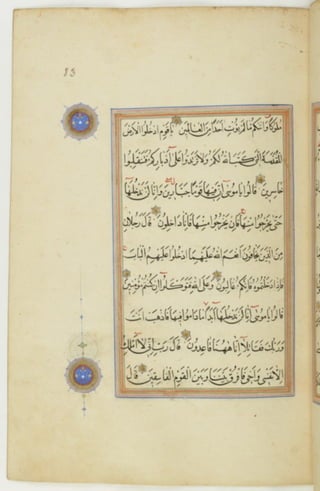 83
ملوكا واتىكم ما لم يؤت احدا من العالمين يا قوم ادخلوا الارض
المقدسة التى كتب الله لكم ولا ترتدوا على ادباركم فتنقلبوا
خاسرين قالوا يا موسى ان فيها قوما جبارين وانا لن ندخلها
حتى يخرجوا منها فان يخرجوا منها فانا داخلون قال رجلان
من الذين يخافون انعم الله عليهما ادخلوا عليهم الباب
فاذا دخلتموه فانكم غالبون وعلى الله فتوكلوا ان كنتم مؤمنين
قالوا يا موسى انا لن ندخلها ابدا ما داموا فيها فاذهب انت
وربك فقاتلا انا ههنا قاعدون قال رب انى لا املك
الا نفسى واخى فافرق بيننا وبين القوم الفاسقين قال